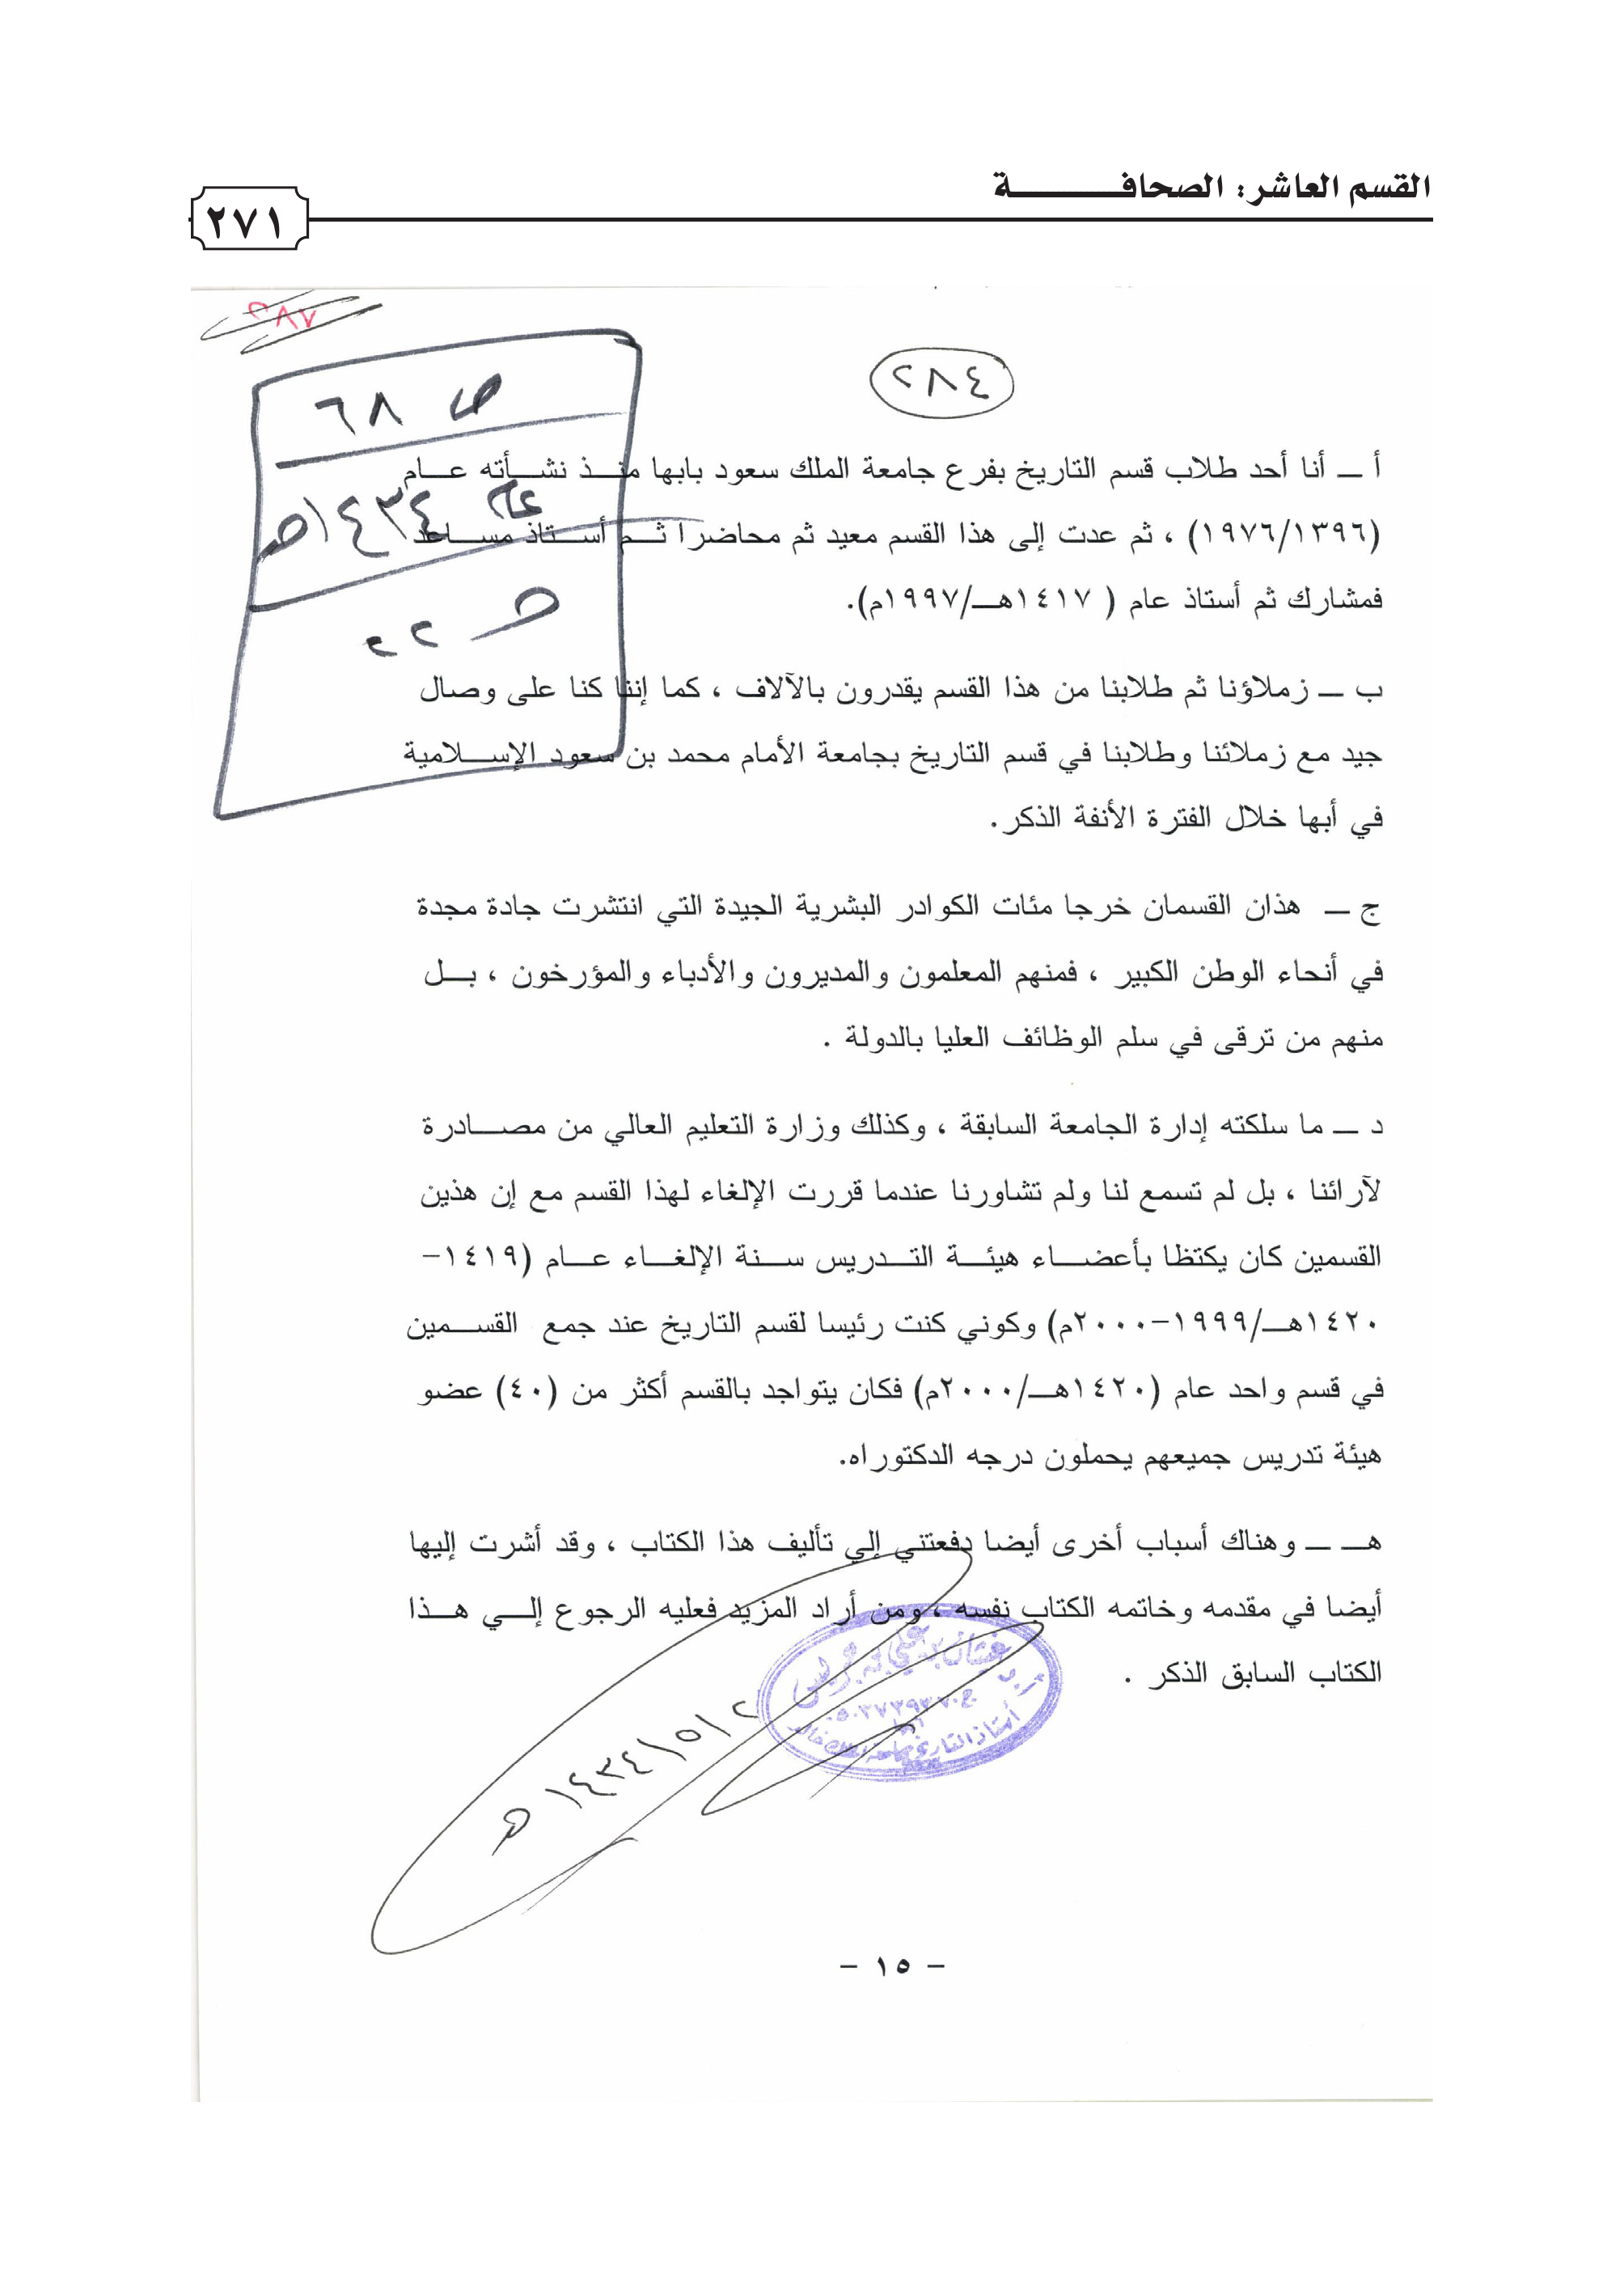 القسم العاشر: الصحافـــــــــــة
٢٧١
٢٨٧
٢٨٤
ص ٦٨
عام ١٤٣٤هـ
أ ــ أنا أحد طلاب قسم التاريخ بفرع جامعة الملك سعود بابها منــذ نشــأته عــام
(١٩٧٦/١٣٩٦) ، ثم عدت إلى هذا القسم معيد ثم محاضرا ثــم أســتاذ مســاعد
فمشارك ثم أستاذ عام ( ١٤١٧هــ/١٩٩٧م).
ب ــ زملاؤنا ثم طلابنا من هذا القسم يقدرون بالآلاف ، كما إننا كنا على وصال
جيد مع زملائنا وطلابنا في قسم التاريخ بجامعة الأمام محمد بن سعود الإســلامية
في أبها خلال الفترة الأنفة الذكر.
ج ــ هذان القسمان خرجا مئات الكوادر البشرية الجيدة التي انتشرت جادة مجدة
في أنحاء الوطن الكبير ، فمنهم المعلمون والمديرون والأدباء والمؤرخون ، بــل
منهم من ترقى في سلم الوظائف العليا بالدولة .
د ــ ما سلكته إدارة الجامعة السابقة ، وكذلك وزارة التعليم العالي من مصــادرة
لآرائنا ، بل لم تسمع لنا ولم تشاورنا عندما قررت الإلغاء لهذا القسم مع إن هذين
القسمين كان يكتظا بأعضــاء هيئــة التــدريس ســنة الإلغــاء عــام (١٤١٩-
١٤٢٠هــ/١٩٩٩-٢٠٠٠م) وكوني كنت رئيسا لقسم التاريخ عند جمع القســمين
في قسم واحد عام (١٤٢٠هــ/٢٠٠٠م) فكان يتواجد بالقسم أكثر من (٤٠) عضو
هيئة تدريس جميعهم يحملون درجه الدكتوراه.
هــ ــ وهناك أسباب أخرى أيضا دفعتني إلي تأليف هذا الكتاب ، وقد أشرت إليها
أيضا في مقدمه وخاتمه الكتاب نفسه ، ومن أراد المزيد فعليه الرجوع إلــي هــذا
الكتاب السابق الذكر .
أ.د غيثان بن علي بن جريس
أستاذ التاريخ بجامعة الملك خالد
٢/٥/١٤٣٤هـ
- ١٥ -